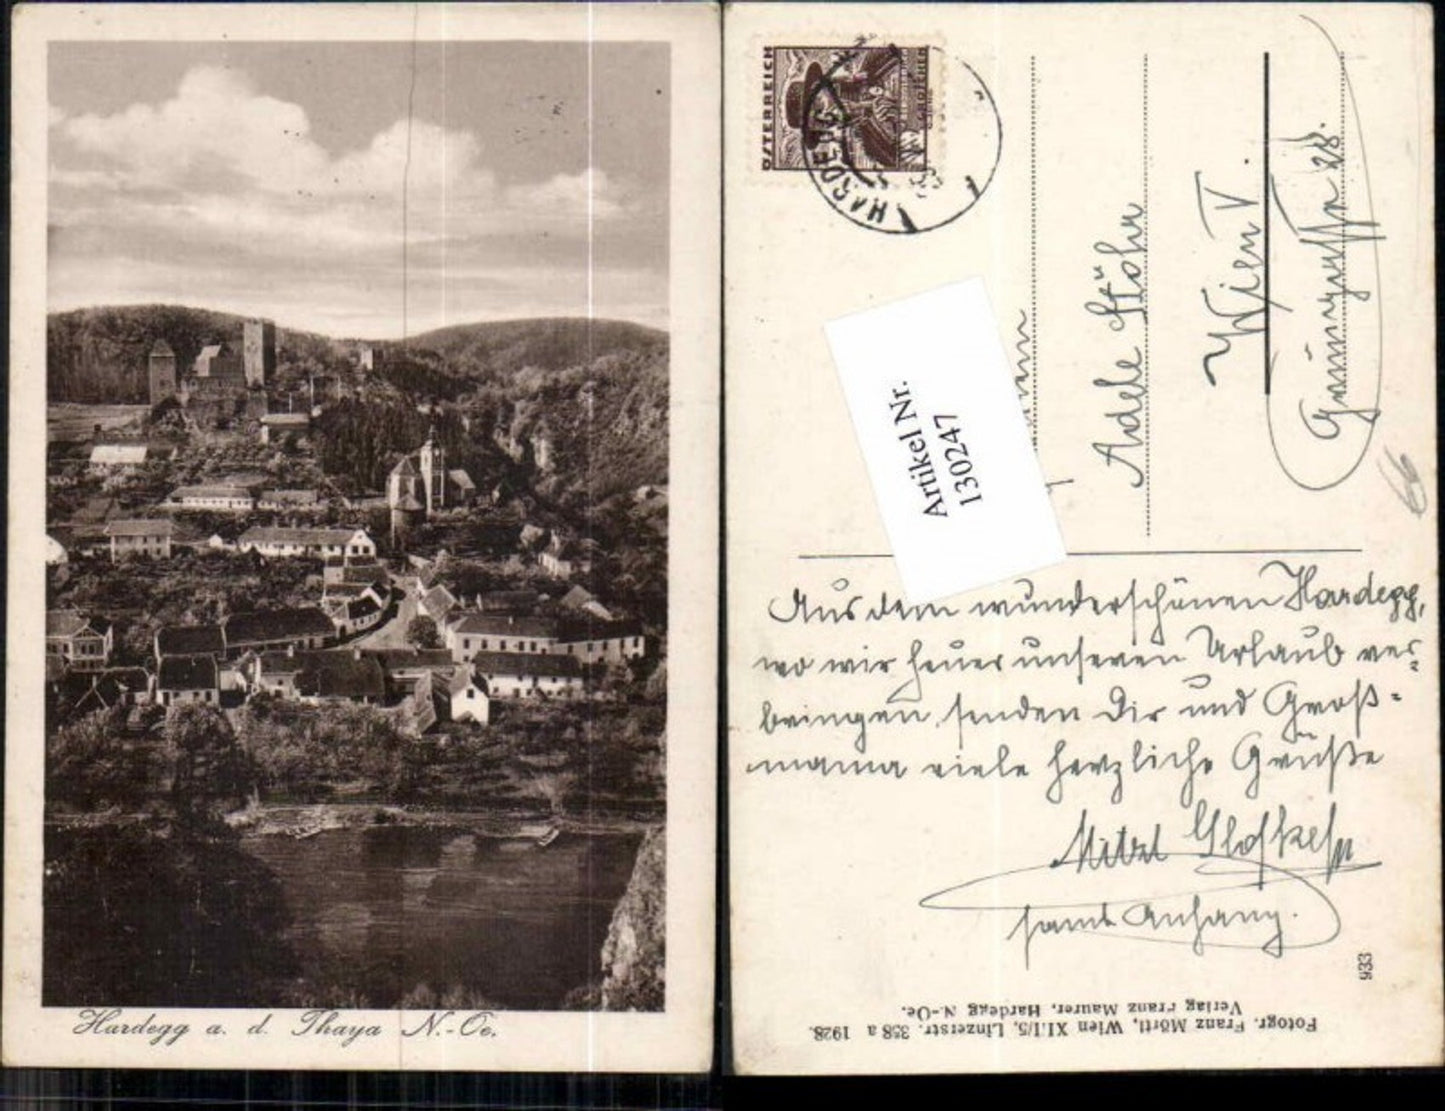 Hardegg a. d. Thaya N.-Oe.
ÖSTERREICH
HARDEGG
Artikel Nr.
130247
Adele Stöhr
Wien V.
28.
66
Aus dem wunderschönen Hardegg,
wo wir heuer unseren Urlaub ver-
bringen, senden Dir und Groß-
mama viele herzliche Grüße
samt Anhang.
933
Fotogr. Franz Mörtl, Wien XII/5, Linzerstr. 358 a 1928.
Verlag Franz Maurer, Hardegg N.-Oe.